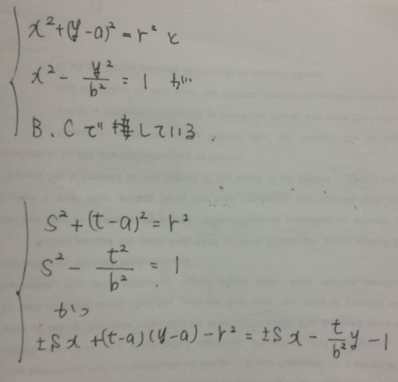 x²+(y-a)²=r² と
x²-y²/b²=1 が
B、Cで接している.
s²+(t-a)²=r²
s²-t²/b²=1
かつ
±sx+(t-a)(y-a)-r²=±sx-t/b² y-1